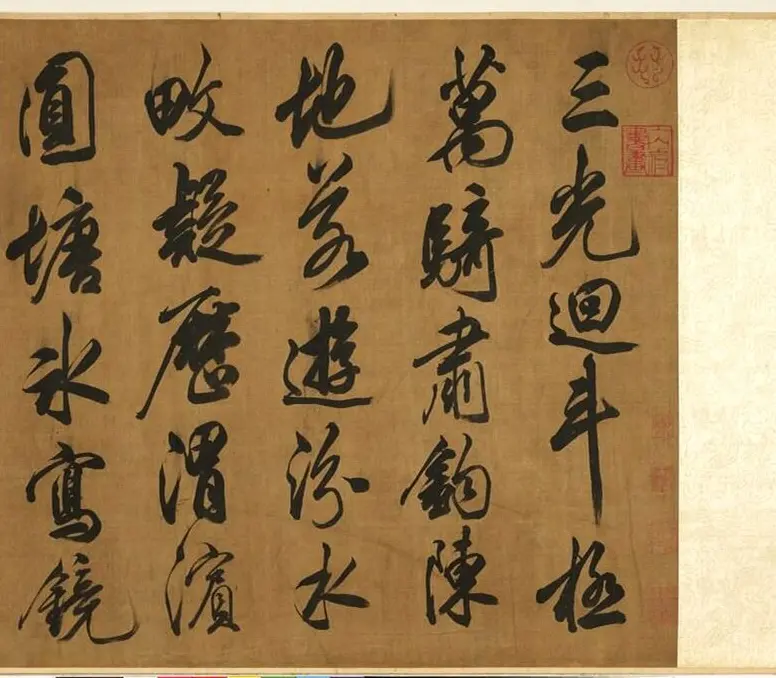 三光迴斗極
萬騎肅鈎陳
地若遊汾水
畋疑歷渭濱
圓塘氷寫鏡